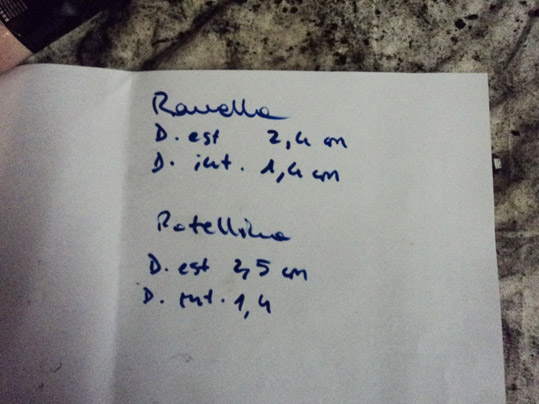 Ranella
D. est 2,4 cm
D. int. 1,4 cm
Rotellina
D. est 2,5 cm
D. int. 1,4